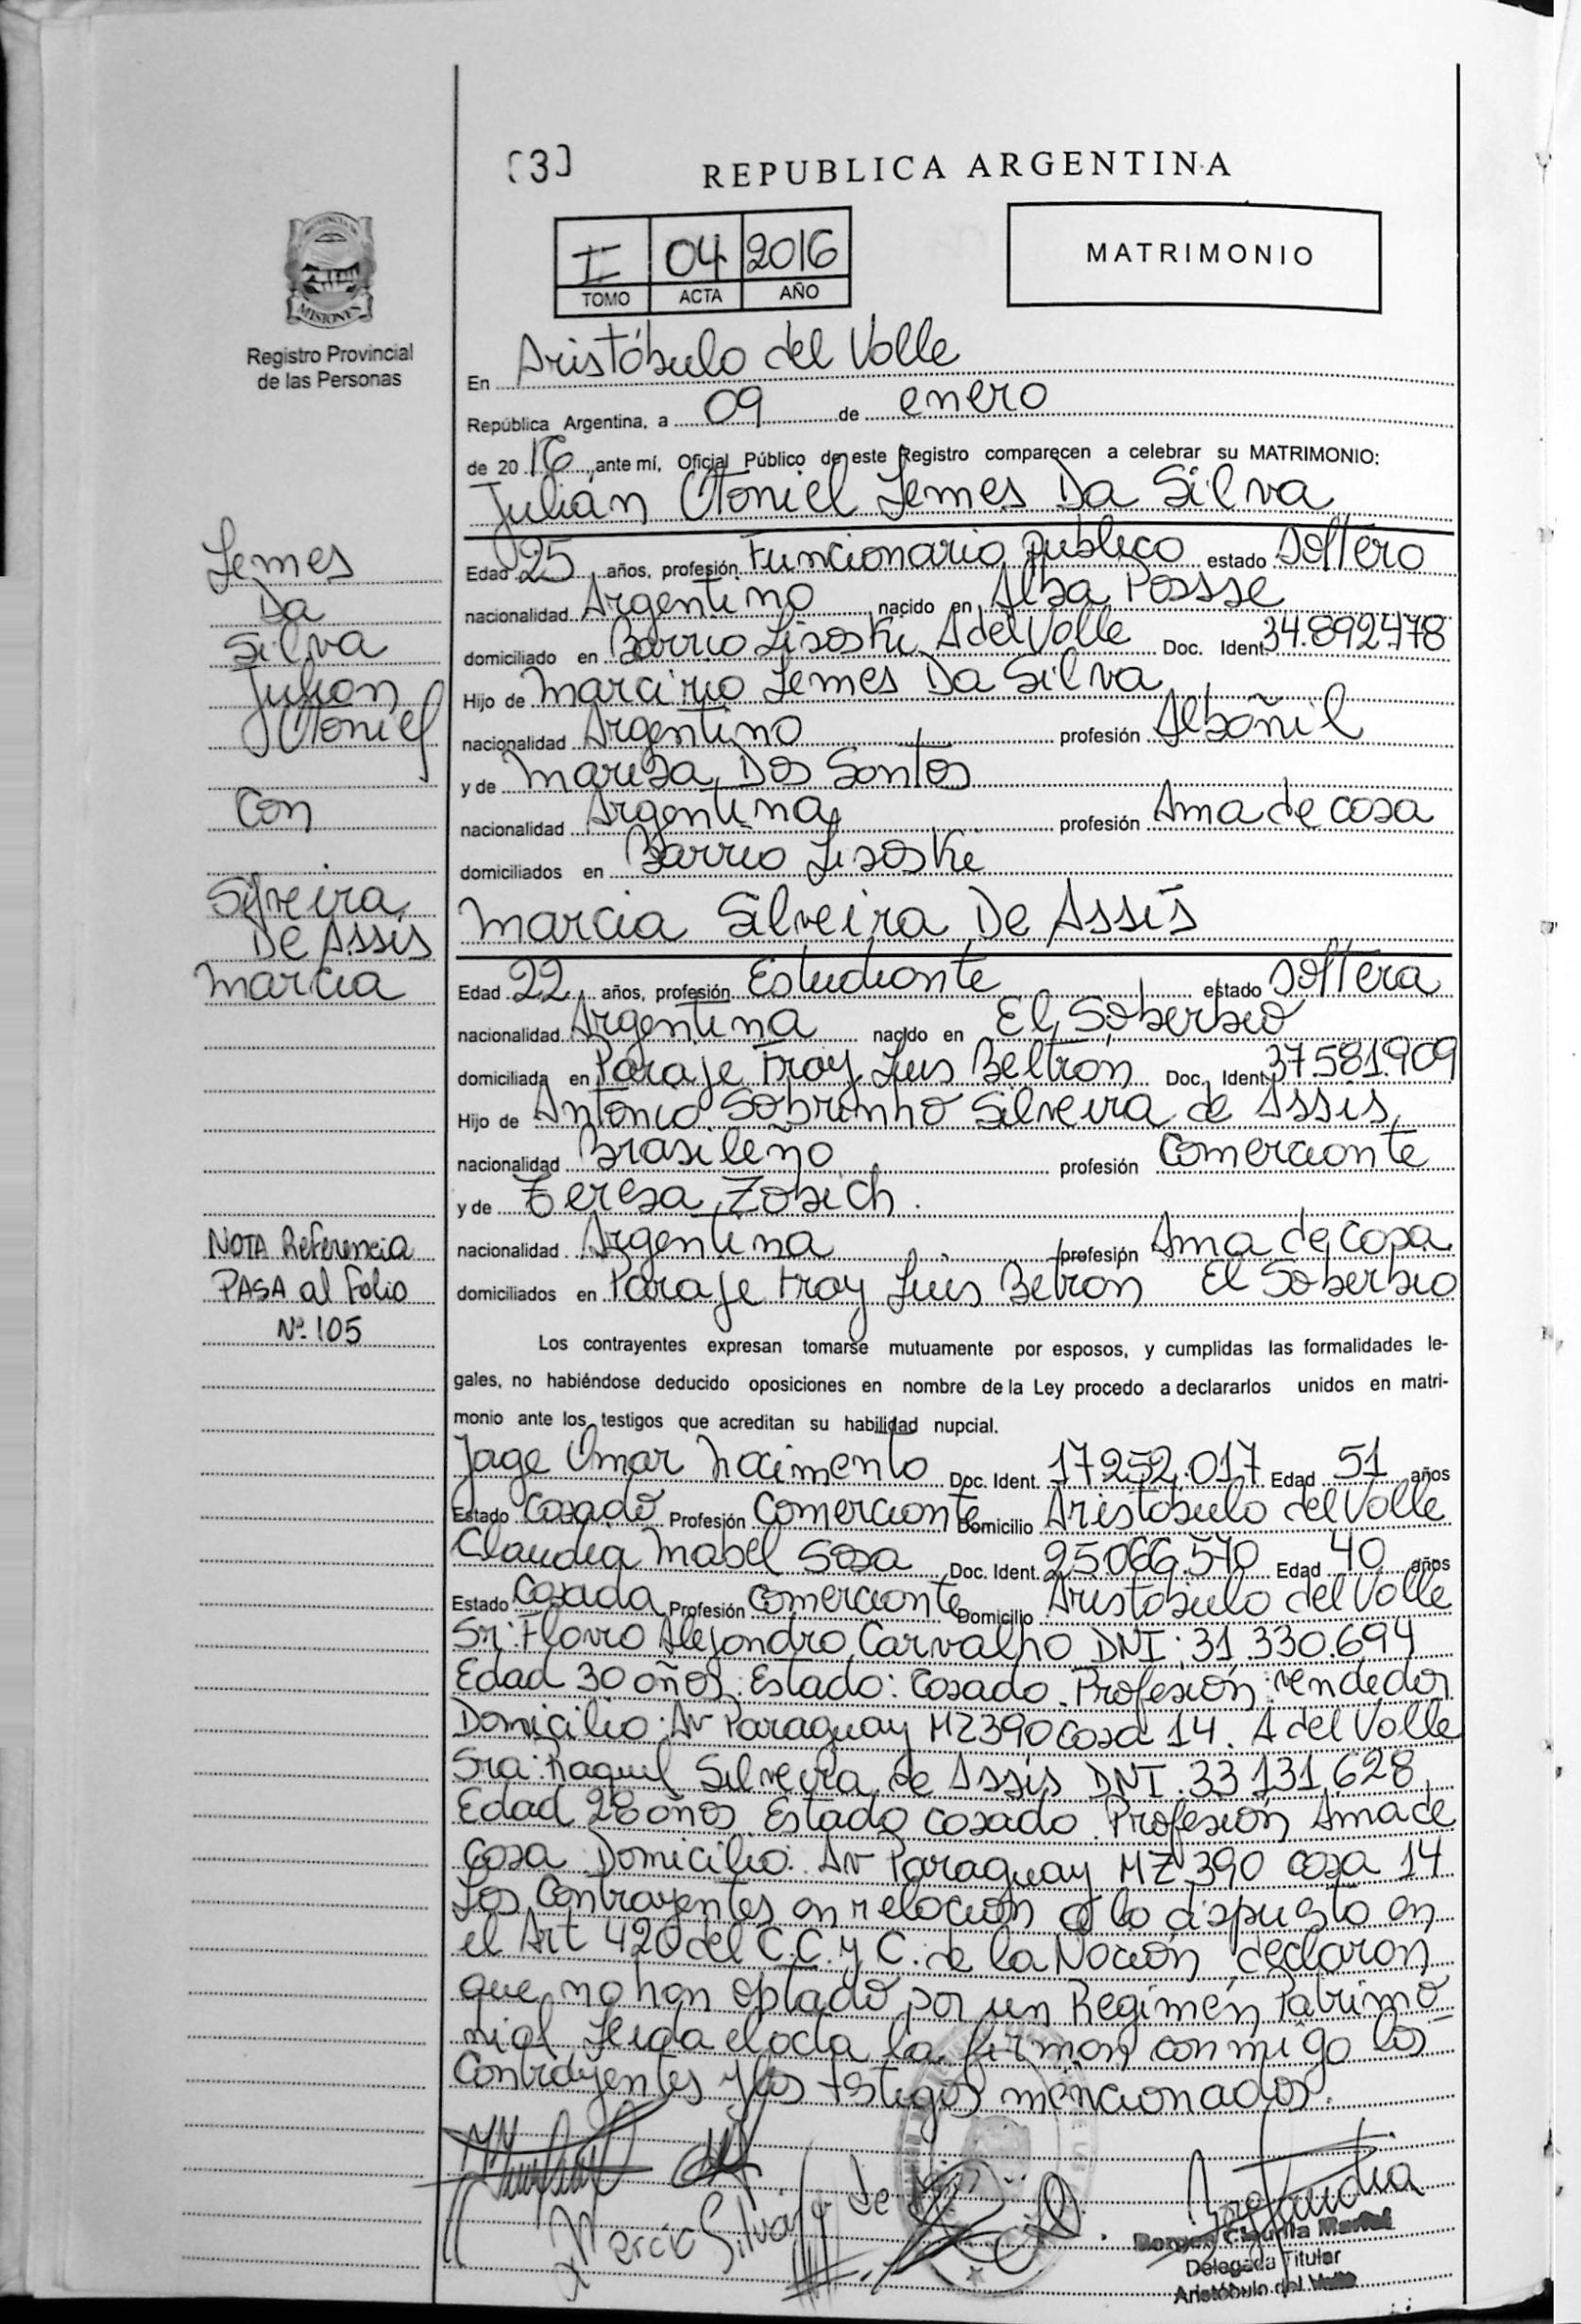 [3] REPUBLICA ARGENTINA
PROVINCIA DE
MISIONES
Registro Provincial
de las Personas
I 04 2016
TOMO ACTA AÑO
MATRIMONIO
En Aristóbulo del Valle
República Argentina, a 09 de enero
de 2016, ante mí, Oficial Público de este Registro comparecen a celebrar su MATRIMONIO:
Julián Otoniel Lemes Da Silva
Edad 25 años, profesión Funcionario público estado soltero
nacionalidad Argentino nacido en Alba Posse
domiciliado en Barrio Lisoski A del Valle Doc. Ident. 34.892.478
Hijo de Marcirio Lemes Da Silva
nacionalidad Argentino profesión Albañil
y de Marisa Dos Santos
nacionalidad Argentina profesión Ama de casa
domiciliados en Barrio Lisoski
Marcia Silveira De Assis
Edad 22 años, profesión Estudiante estado soltera
nacionalidad Argentina nacido en El Soberbio
domiciliada en Paraje Fray Luis Beltrán Doc. Ident. 37.581.909
Hijo de Antonio Sobrinho Silveira de Assis
nacionalidad Brasileño profesión Comerciante
y de Teresa Zobich.
nacionalidad Argentina profesión Ama de casa
domiciliados en Paraje Fray Luis Betran El Soberbio
Lemes
Da
Silva
Julian
Otoniel
Con
Silveira
De Assis
Marcia
NOTA Referencia
PASA al folio
Nº 105
Los contrayentes expresan tomarse mutuamente por esposos, y cumplidas las formalidades le-
gales, no habiéndose deducido oposiciones en nombre de la Ley procedo a declararlos unidos en matri-
monio ante los testigos que acreditan su habilidad nupcial.
Jorge Omar Nacimento Doc. Ident. 17.252.017 Edad 51 años
Estado Casado Profesión Comerciante Domicilio Aristobulo del Valle
Claudia Mabel Sosa Doc. Ident. 25.066.570 Edad 40 años
Estado Casada Profesión Comerciante Domicilio Aristobulo del Valle
Sr: Flavio Alejandro Carvalho DNI: 31.330.694
Edad 30 años. Estado: Casado. Profesión: vendedor
Domicilio: Av Paraguay MZ390 casa 14. A del Valle
Sra: Raquel Silveira de Assis DNI. 33 131.628
Edad 28 años Estado casado Profesión Ama de
casa Domicilio: Av Paraguay MZ 390 casa 14
Los Contrayentes en relación a lo dispuesto en
el Art 420 del C.C. y C. de la Nación declaran
que no han optado por un Regimen Patrimo
nial Leida el acta la firman conmigo los
Contrayentes y los testigos mencionados.
Marcia Silveira de
Claudia
Delegada Titular
Aristóbulo del Valle